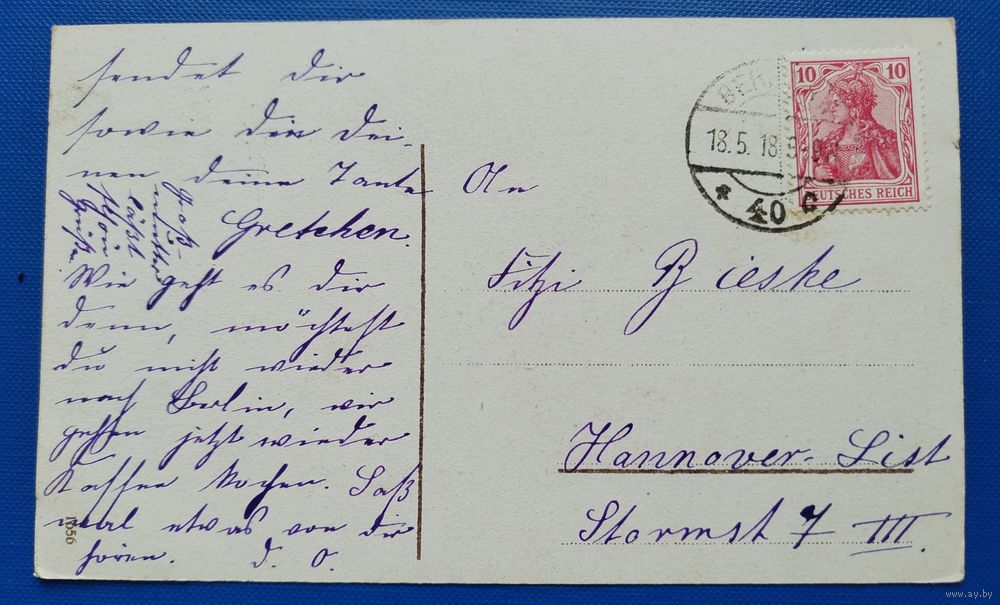 sendet dir
sowie den Dei-
nen deine Tante
Gretchen.
Groß-
mutter
läßt
schön
Grüßen.
Wie geht es dir
denn, möchtest
du nicht wieder
nach Berlin, wir
gehen jetzt wieder
Kaffee kochen. Laß
mal etwas von dir
hören. d. O.
1056
An
Fitzi Bieske
Hannover-List
Stormst 7 III.
BER
18.5.18
* 40 C
10 10
DEUTSCHES REICH
www.ay.by